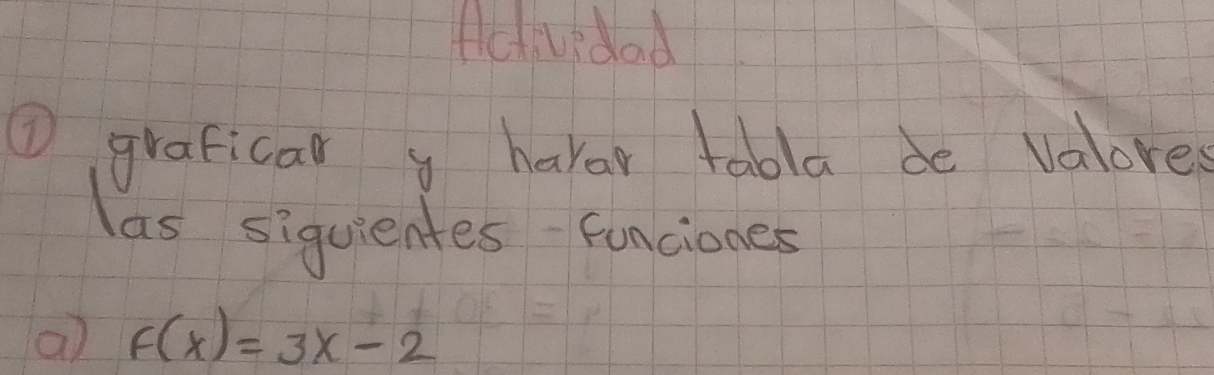 Actividad
① graficar y harar tabla de valores
las siguientes funciones
a) f(x) = 3x - 2